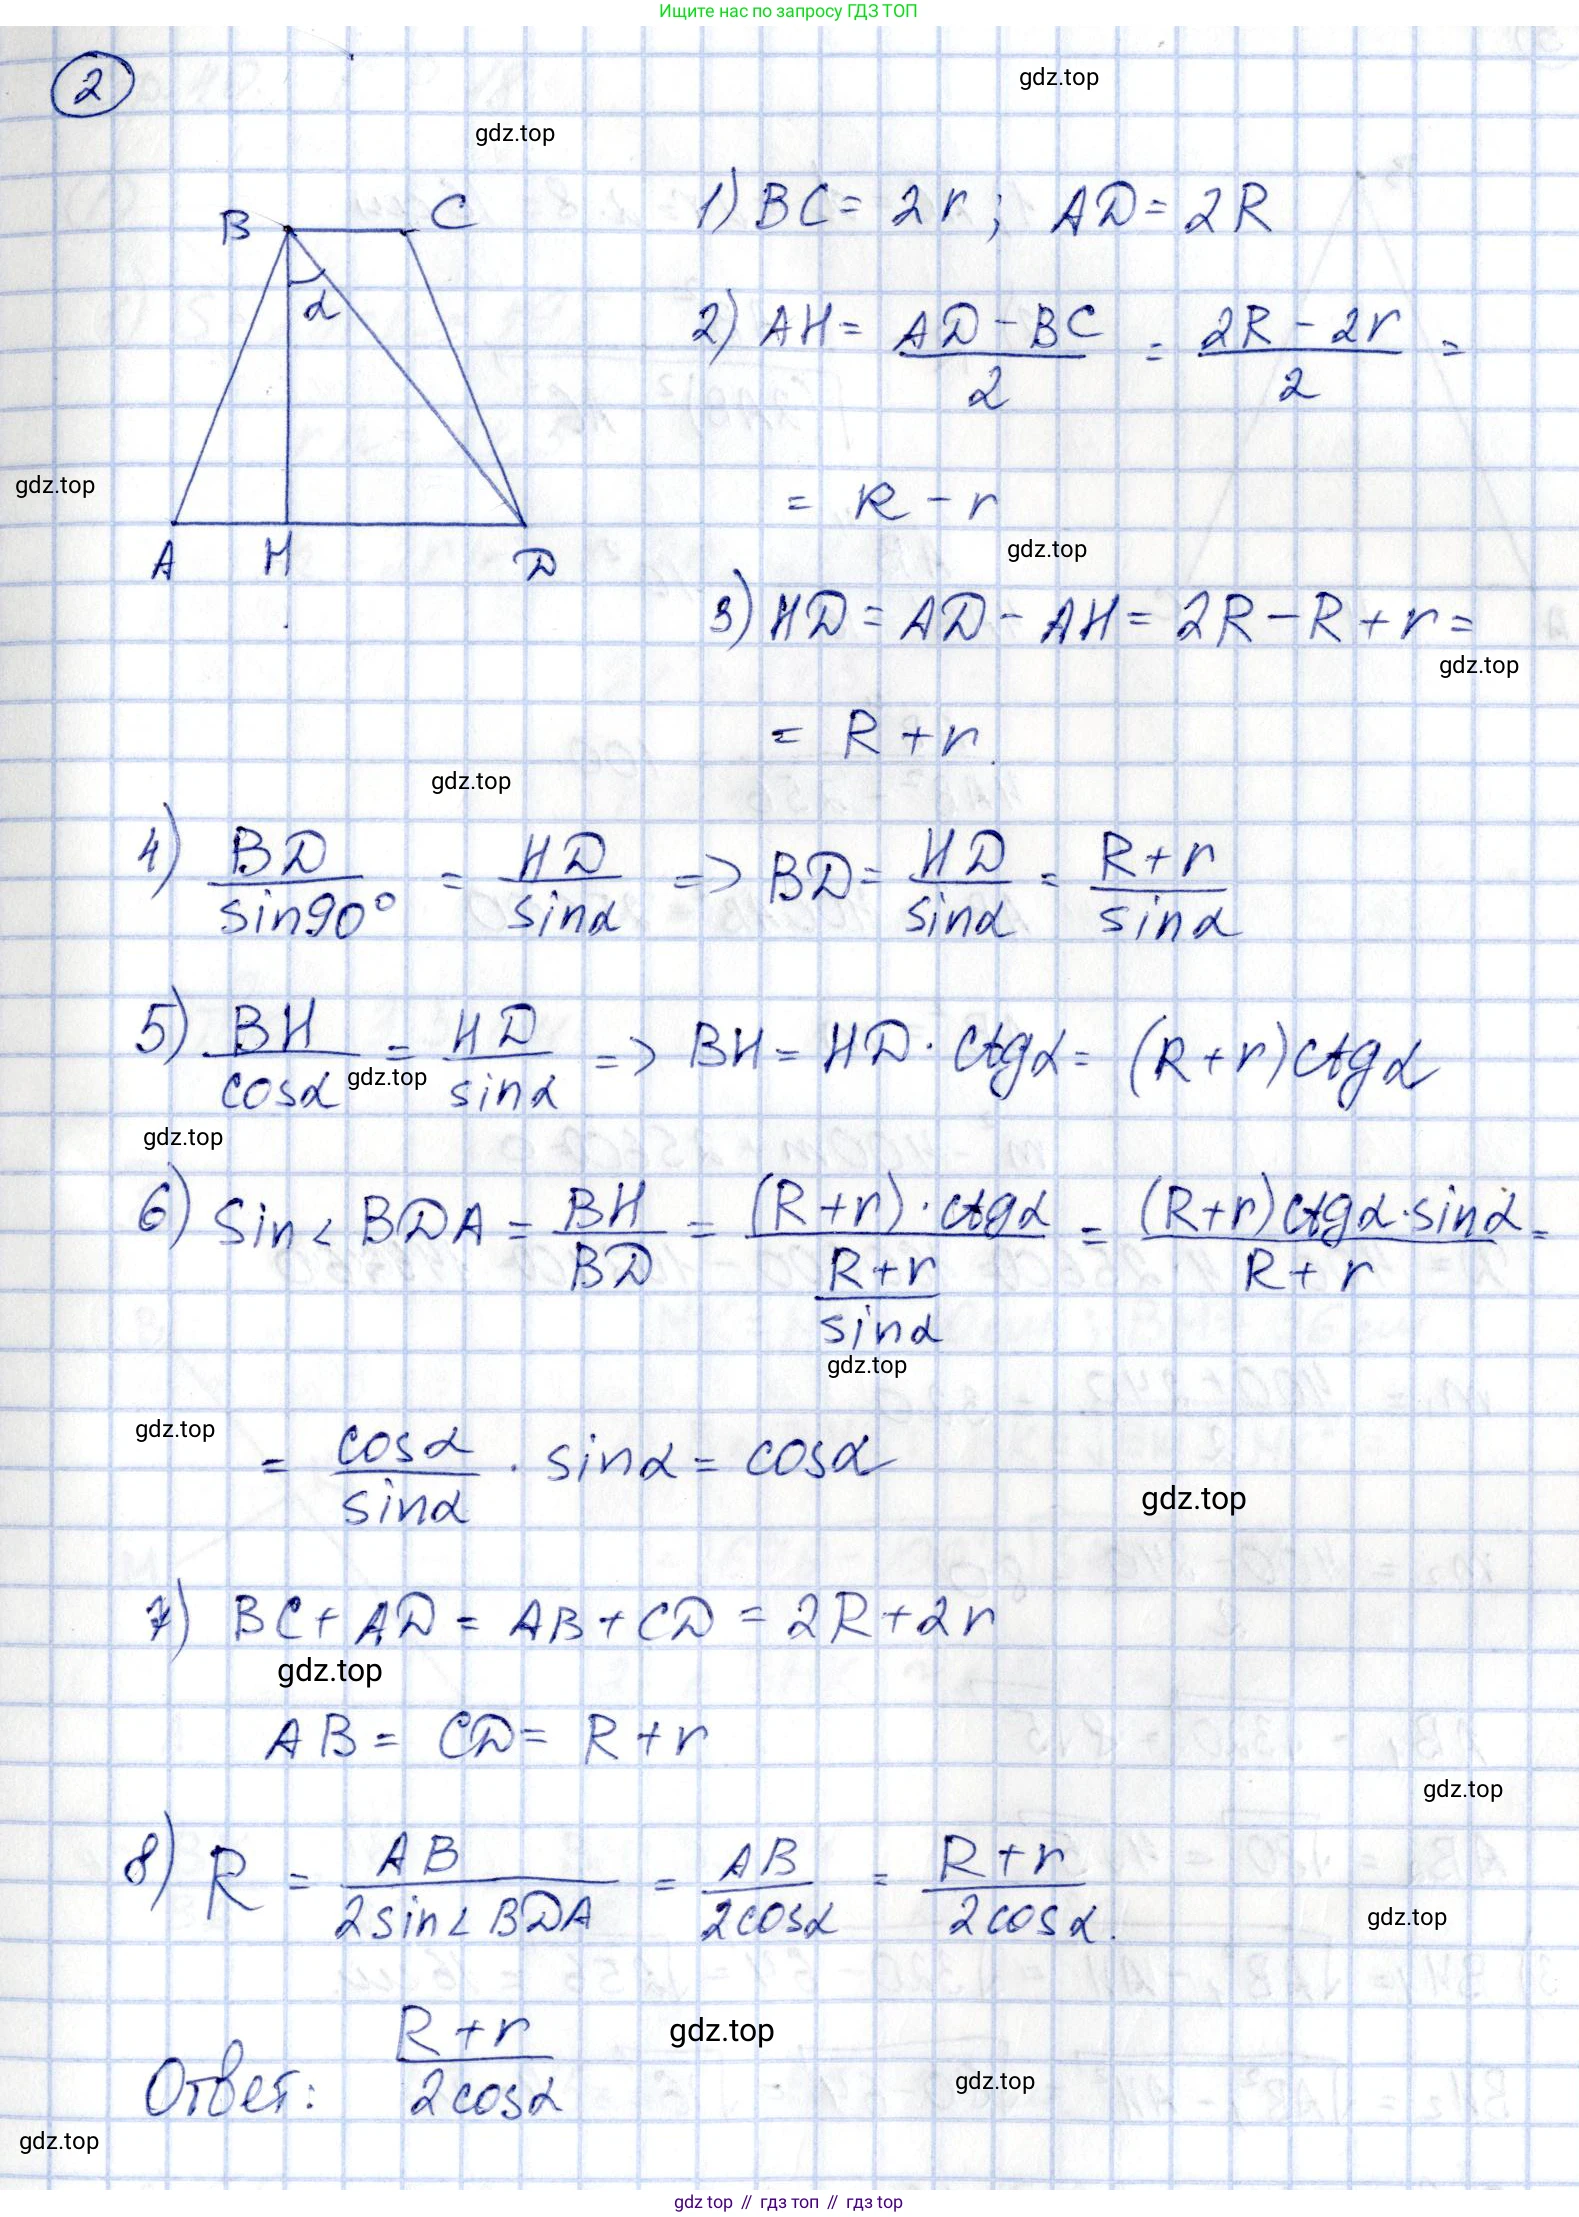 Ищите нас по запросу ГДЗ ТОП
2
gdz.top
gdz.top
B C
α
A H D
gdz.top
1) BC = 2r; AD = 2R
2) AH = (AD - BC)/2 = (2R - 2r)/2 =
= R - r
gdz.top
3) HD = AD - AH = 2R - R + r =
gdz.top
= R + r.
gdz.top
4) BD/sin90° = HD/sinα => BD = HD/sinα = (R + r)/sinα
5) BH/cosα = HD/sinα => BH = HD · ctgα = (R + r)ctgα
gdz.top
gdz.top
6) Sin∠BDA = BH/BD = ((R + r) · ctgα)/((R + r)/sinα) = ((R + r)ctgα · sinα)/(R + r) =
gdz.top
gdz.top
= cosα/sinα · sinα = cosα
gdz.top
7) BC + AD = AB + CD = 2R + 2r
gdz.top
AB = CD = R + r
gdz.top
8) R = AB/(2sin∠BDA) = AB/(2cosα) = (R + r)/(2cosα).
gdz.top
Ответ: (R + r)/(2cosα)
gdz.top
gdz.top
gdz.top
gdz top // гдз топ // гдз top